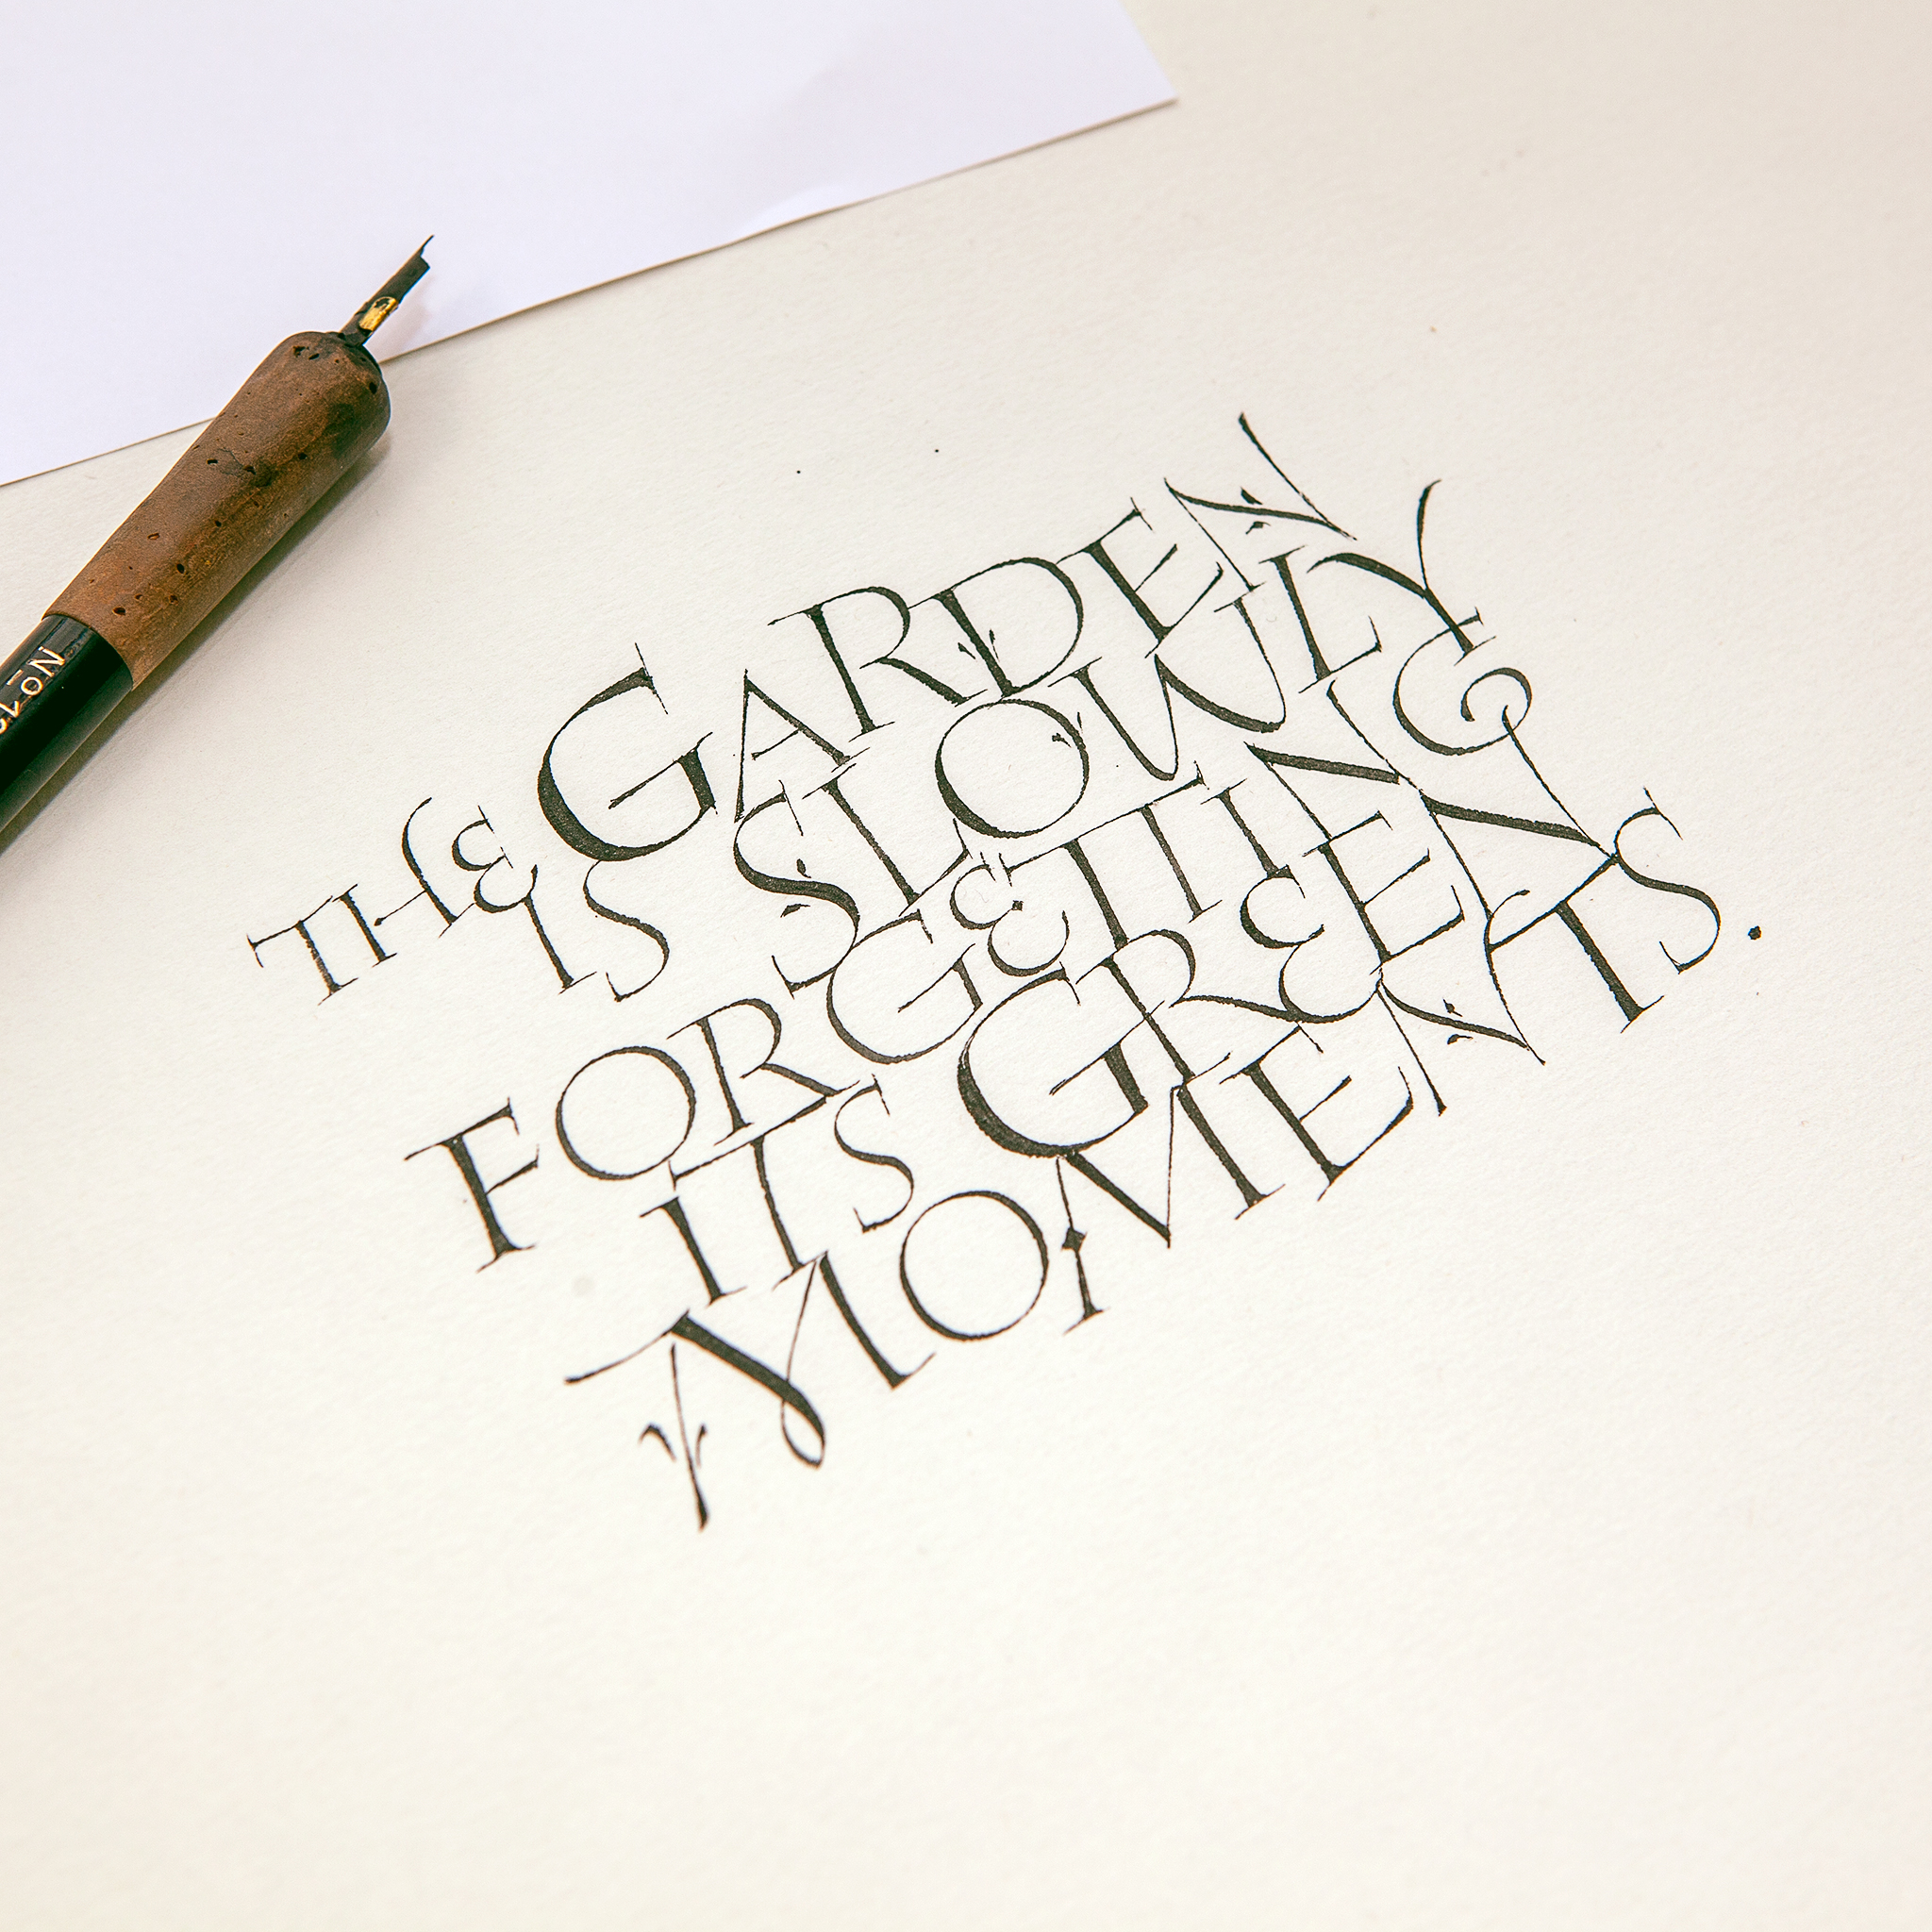 THE GARDEN
IS SLOWLY
FORGETTING
ITS GREEN
MOMENTS.
No